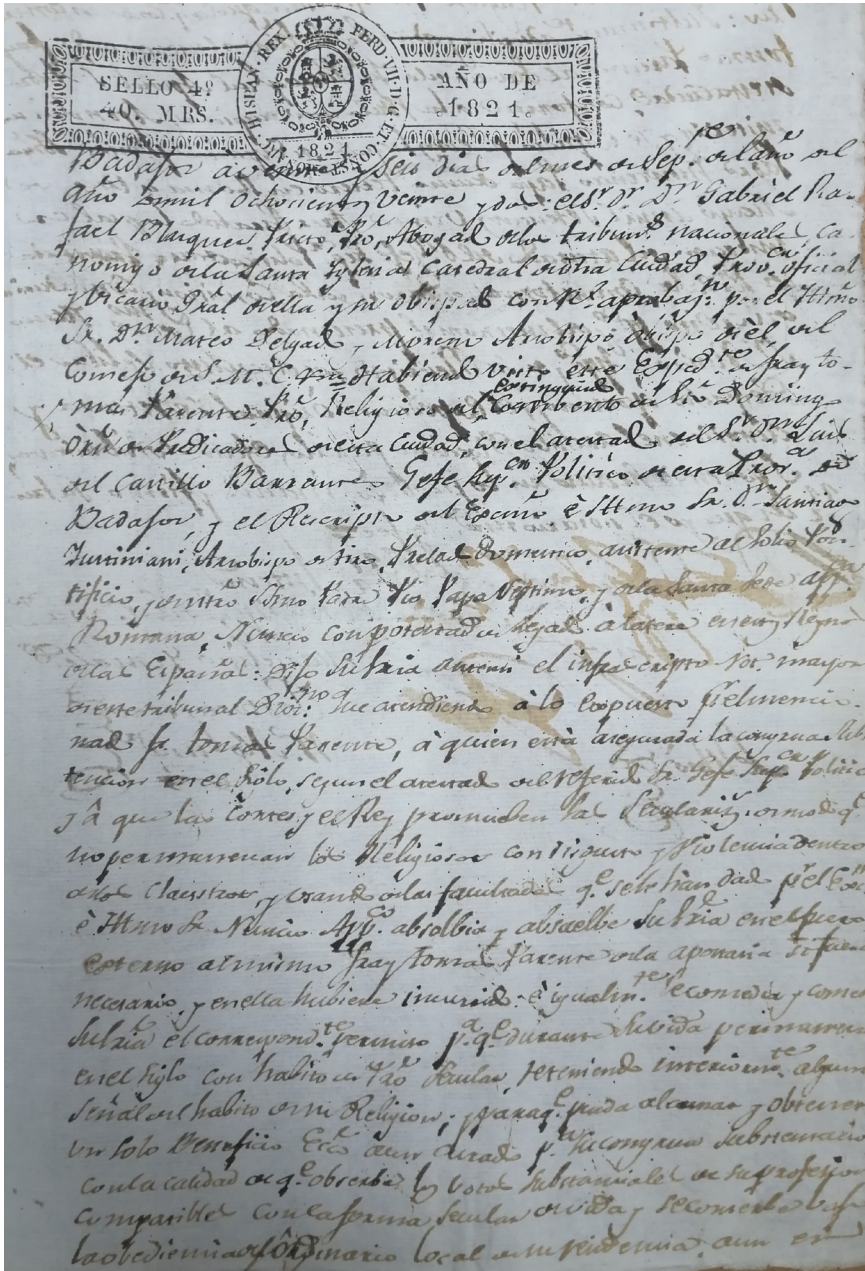 SELLO 4º
40. MRS.
HISPAN. REX. FERD. VII. D. G. ET CONST. MON.
1821
AÑO DE
1821.
Badajoz à veinte y seis dias del mes de Sep.re del año del
año de mil ochocientos veinte y dos: el Sr. Dr. Dn. Gabriel Ra-
fael Blazquez Prieto, Pro, Abogado de los tribun.s nacionales, Ca-
nonigo de la Santa Yglesia Catedral de dha Ciudad, Prov.or oficial
y Vicario Gral de ella y su obispado con Rl. aprobaz.n por el Yllmo
Sr. Dn. Mateo Delgado y Moreno Arzobispo Obispo de él, del
Consejo de S. M. C. Habiendo visto este Exped.te de fray to-
mas Parente Pro, Religioso del extinguido Combento de Sto. Domingo
Orn de Predicadores de esta Ciudad, con el atestado del Sr. Dn. Luis
del Castillo Gefe Sup.or Politico de esta Prov.a de
Badajoz, y el Rescripto del Excmo è Yllmo Sr. Dn. Santiago
Justiniani, Arzobispo de tiro, Prelado Domestico, asistente al Solio Pon-
tificio, y de ntro Smo Padre Pio Papa Septimo, y de la Santa Sede App.ca
Romana, Nuncio con potestad de Legado à latere en estos Reynos
de las Españas: Dijo Su Sria ante mi el infraescripto Not.o mayor
de este tribunal Que atendiendo à lo expuesto pr el mencio-
nado fr. tomas Parente, à quien està asegurada la congrua subs-
tencion en el siglo, segun el atestado del referido Sr. Gefe Sup.or Politico
y à que las Cortes y el Rey promueben las de modo q.e
no permanezcan los Religiosos con disgusto y violencia dentro
de los Claustros, y usando de las facultades q.e se le han dado pr el Exc.mo
è Yllmo Sr. Nuncio App.co absolbia y absuelbe Su Sria en el fuero
externo al mismo fray tomas Parente de la apostasia si fuere
necesario, y en ella hubiere incurrido: è igualm.te concedia y concede
Su Sria el correspond.te permiso p.a q.e durante su vida permanezca
en el siglo con habito de Pro Secular, reteniendo interiorm.te alguna
señal del habito de su Religion; y para q.e pueda alcanzar y obtener
un solo Beneficio Ecco aun curado p.a su congrua substentacion
con la calidad de q.e observe los votos substanciales de su profesion
compatibles con la forma secular de vida y se combierta bajo
la obediencia del Ordinario local de su residencia aun en